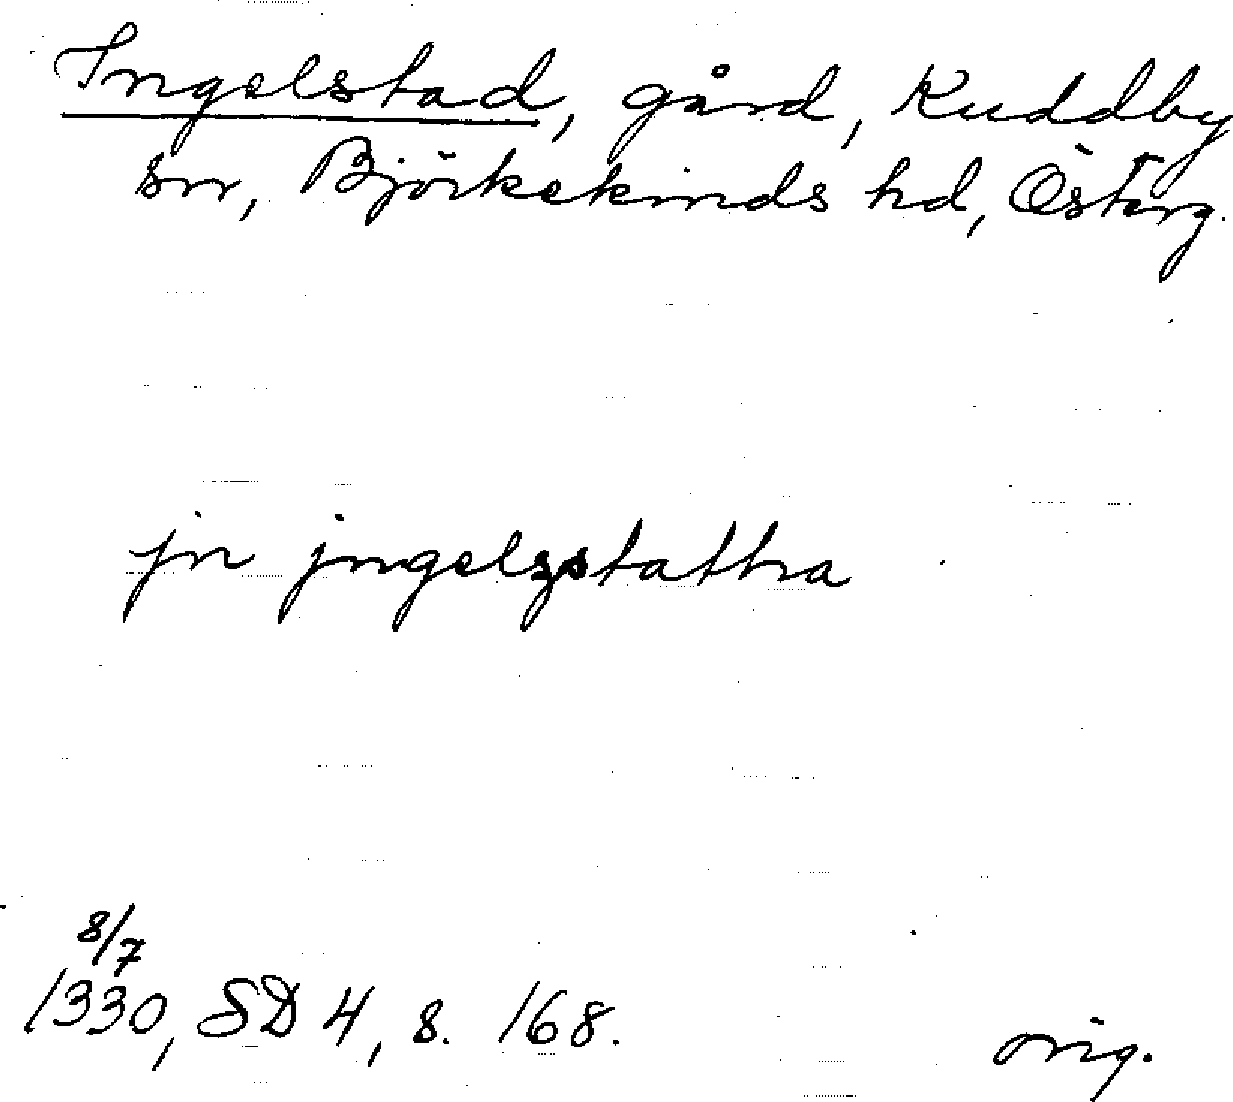 Ingelstad, gård, Kuddby
sn, Björkekinds hd, Österg.
jn jngelzstathra
8/7
1330, SD 4, s. 168.
orig.